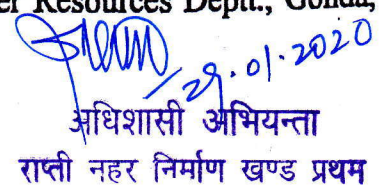 er Resources Deptt., Gonda,
29.01.2020
अधिशासी अभियन्ता
राप्ती नहर निर्माण खण्ड प्रथम